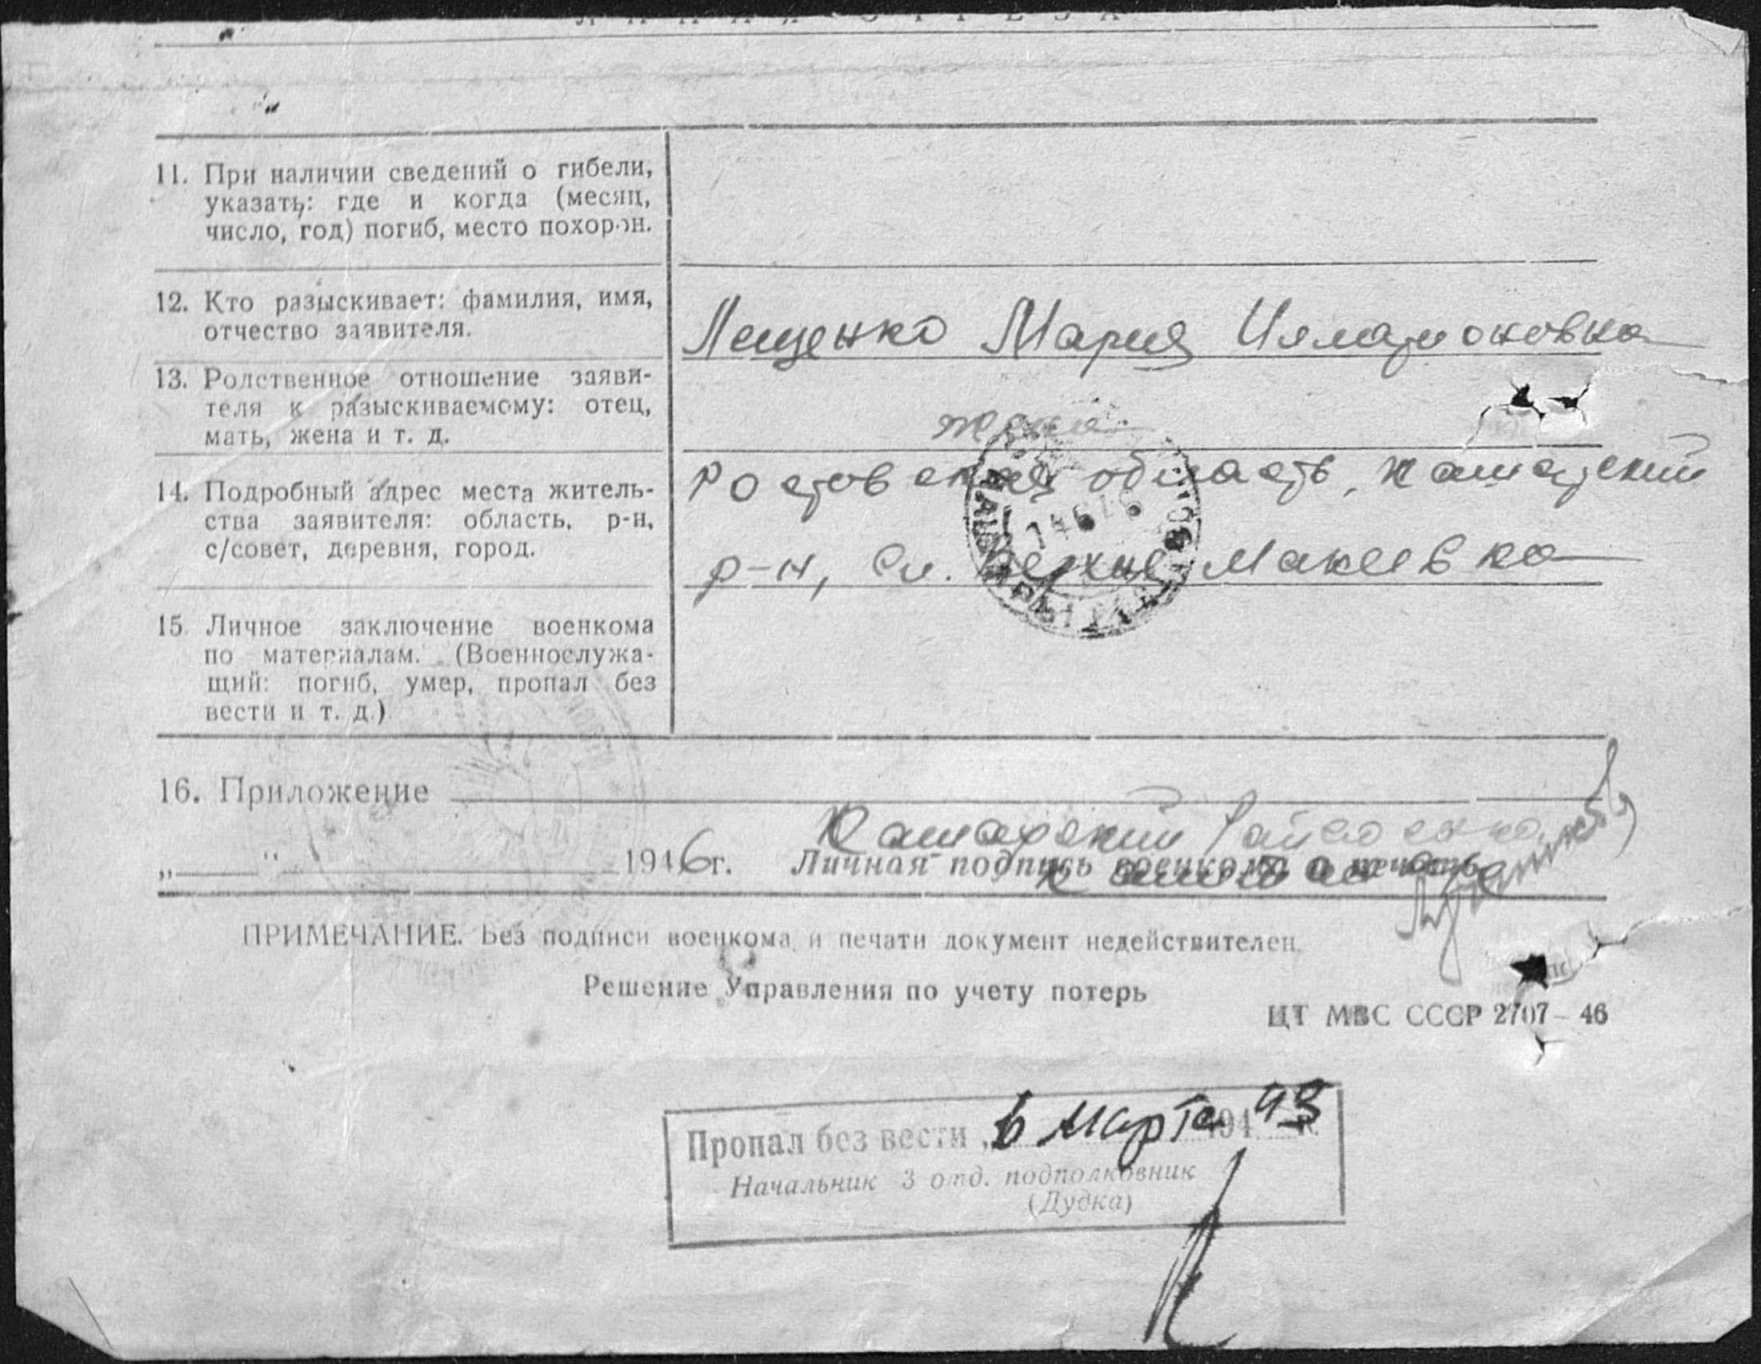 ЛИНИЯ ОТРЕЗА
11. При наличии сведений о гибели,
указать: где и когда (месяц,
число, год) погиб, место похорон.
12. Кто разыскивает: фамилия, имя,
отчество заявителя.
Лещенко Мария
13. Родственное отношение заяви-
теля к разыскиваемому: отец,
мать, жена и т. д.
жена
14. Подробный адрес места житель-
ства заявителя: область, р-н,
с/совет, деревня, город.
Ростовская область, Кашарский
р-н, сл. Верхне Макеевка
15. Личное заключение военкома
по материалам. (Военнослужа-
щий: погиб, умер, пропал без
вести и т. д.)
16. Приложение
Кашарский Райвоенком
„ " 1946 г. Личная подпись военкома и печать
ПРИМЕЧАНИЕ. Без подписи военкома и печати документ недействителен.
Решение Управления по учету потерь
ЦТ МВС СССР 2707—46
Пропал без вести „ 6 марта 194 43
Начальник 3 отд. подполковник
(Дудка)